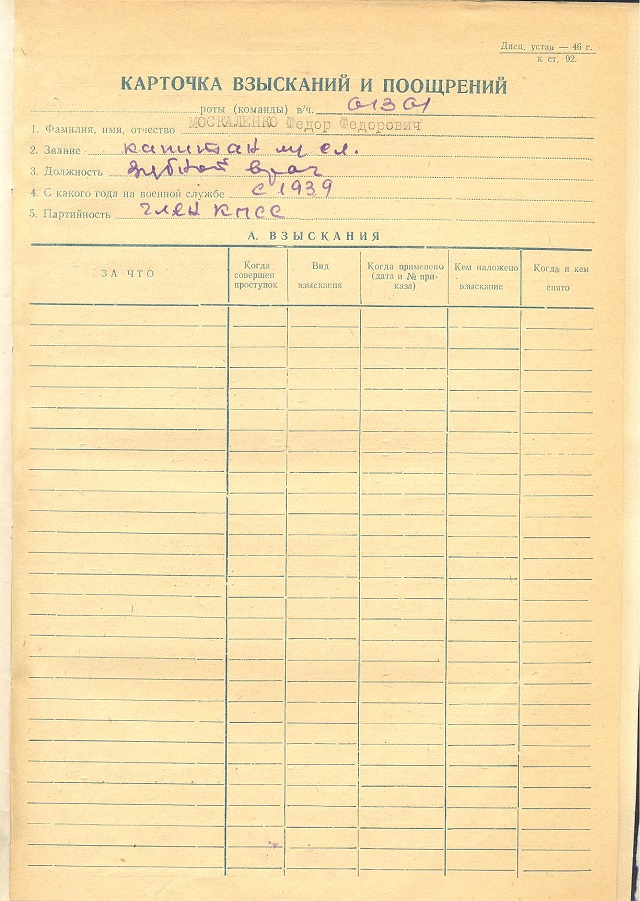 Дисц. устав — 46 г.
к ст. 92.
КАРТОЧКА ВЗЫСКАНИЙ И ПООЩРЕНИЙ
роты (команды) в/ч. 01301
1. Фамилия, имя, отчество МОСКАЛЕНКО Федор Федорович
2. Звание капитан м/сл.
3. Должность зубной врач
4. С какого года на военной службе с 1939
5. Партийность член КПСС
А. ВЗЫСКАНИЯ
ЗА ЧТО
Когда совершен проступок
Вид взыскания
Когда применено (дата и № приказа)
Кем наложено взыскание
Когда и кем снято